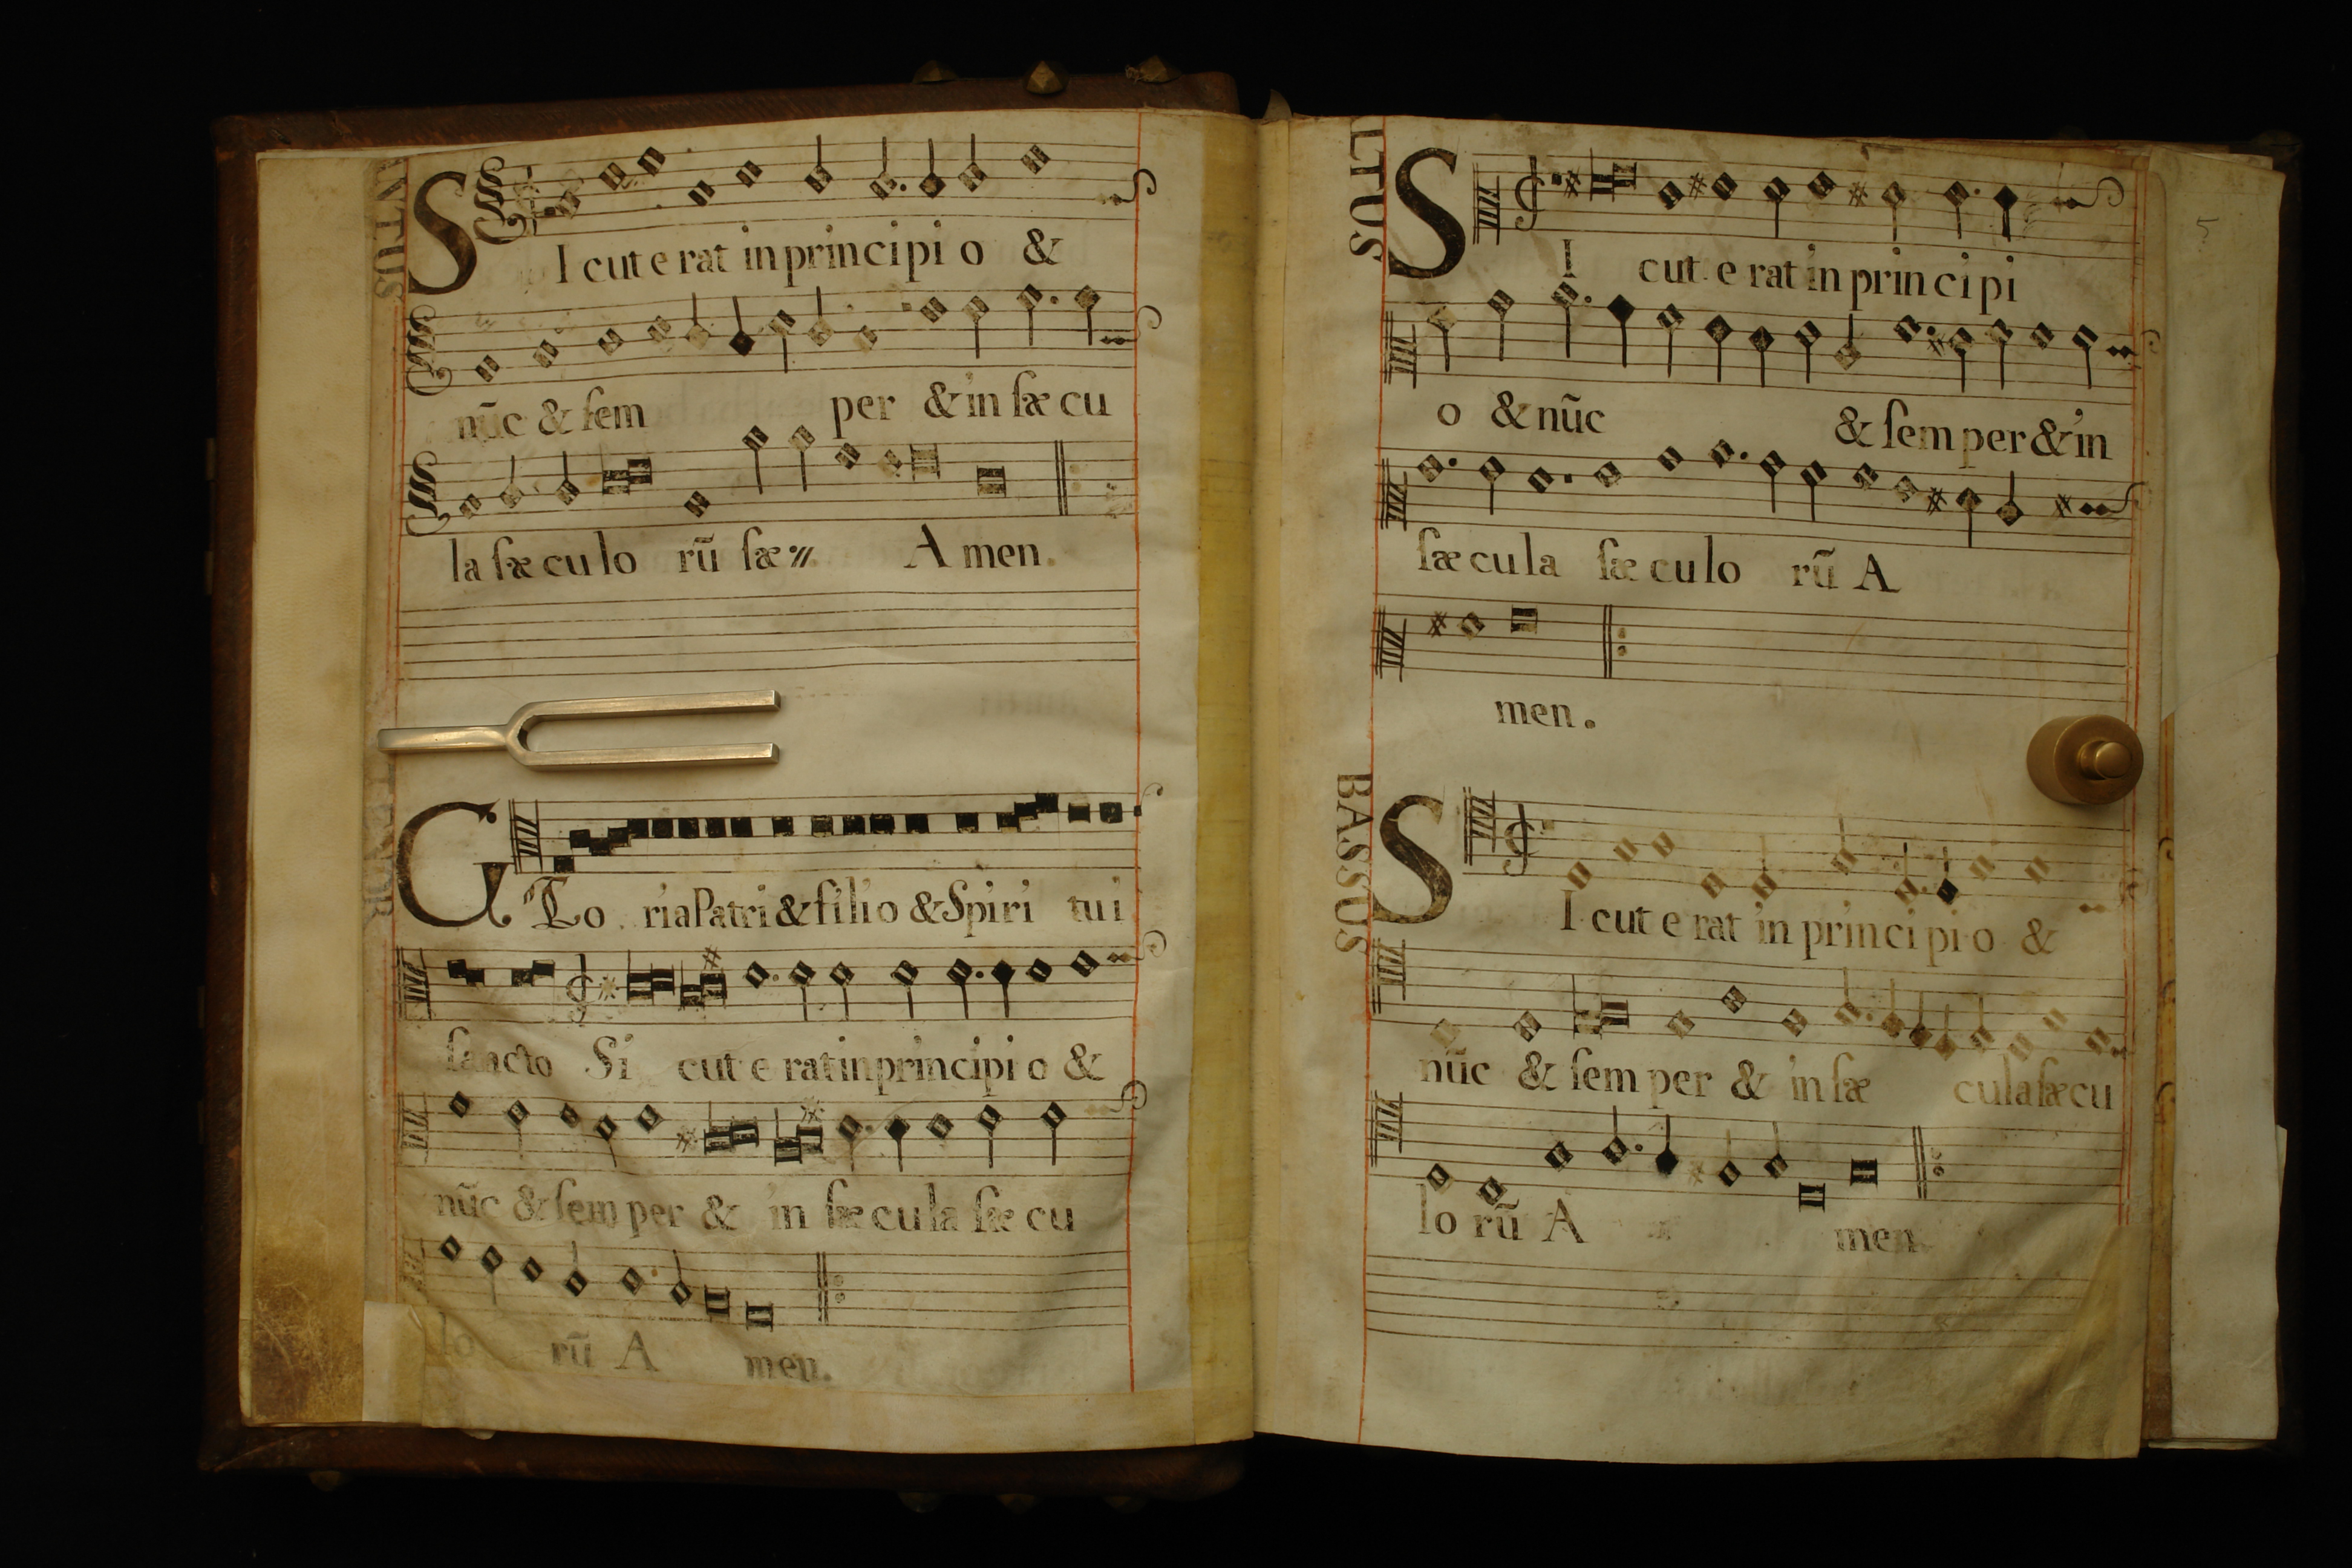 SI cut e rat in principi o &
nūc & ſem per & in ſæ cu
la ſæ cu lo rū ſæ A men.
TENOR
GLo ria Patri & filio & Spiri tui
ſancto Si cut e rat in principi o &
nūc & ſem per & in ſæ cu la ſæ cu
lo rū A men.
ALTUS
SI cut e rat in prin ci pi
o & nūc & ſem per & in
ſæ cu la ſæ cu lo rū A
men.
BASSUS
SI cut e rat in prin ci pi o &
nūc & ſem per & in ſæ cu la ſæ cu
lo rū A men